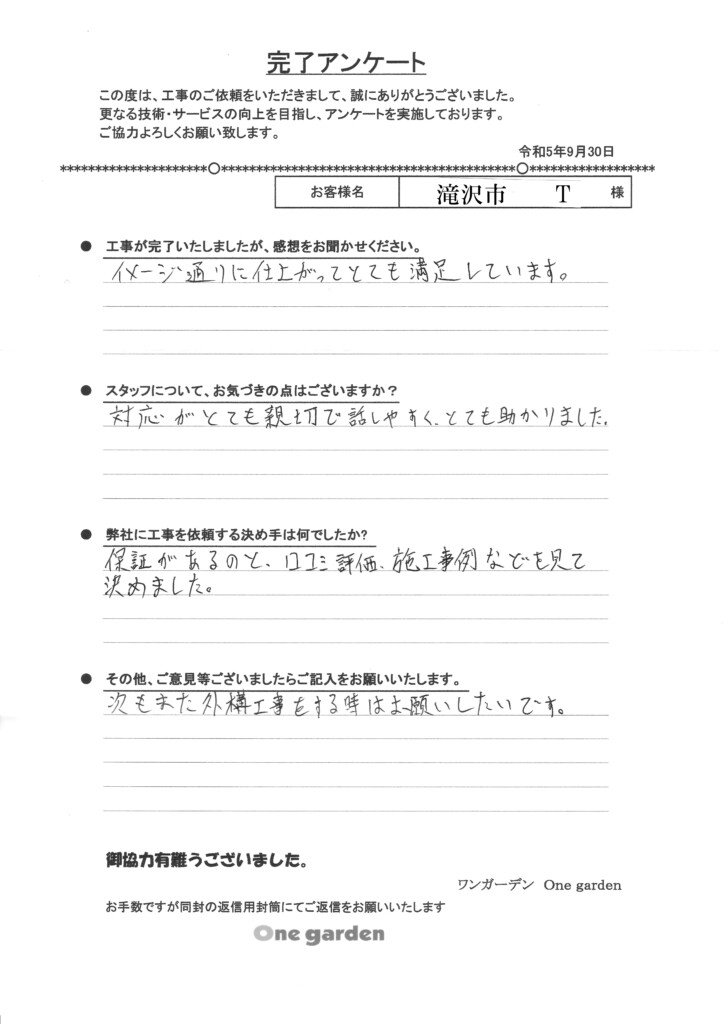 完了アンケート
この度は、工事のご依頼をいただきまして、誠にありがとうございました。
更なる技術・サービスの向上を目指し、アンケートを実施しております。
ご協力よろしくお願い致します。
令和5年9月30日
お客様名 滝沢市 T 様
● 工事が完了いたしましたが、感想をお聞かせください。
イメージ通りに仕上がってとても満足しています。
● スタッフについて、お気づきの点はございますか？
対応がとても親切で話しやすく、とても助かりました。
● 弊社に工事を依頼する決め手は何でしたか?
保証があるのと、口コミ評価、施工事例などを見て
決めました。
● その他、ご意見等ございましたらご記入をお願いいたします。
次もまた外構工事をする時はお願いしたいです。
御協力有難うございました。
ワンガーデン One garden
お手数ですが同封の返信用封筒にてご返信をお願いいたします
One garden